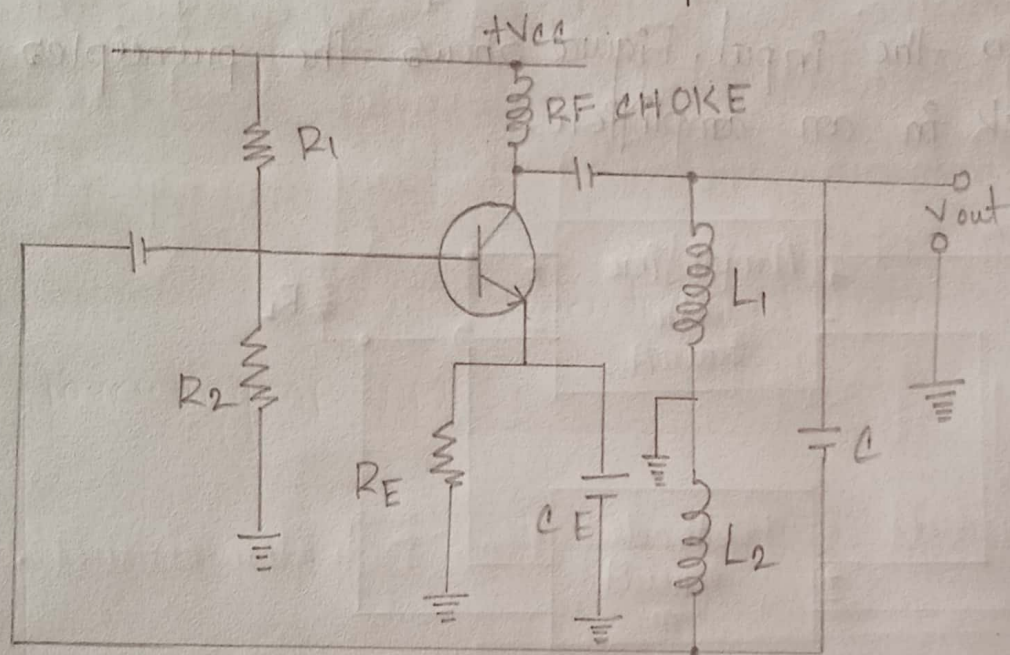 +Vcc
RF CHOKE
R1
Vout
L1
R2
C
RE
CE
L2